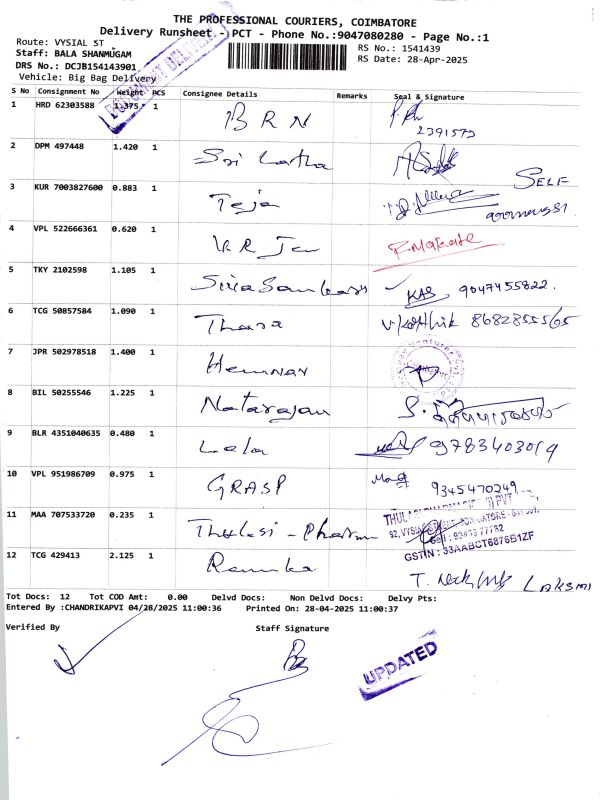 THE PROFESSIONAL COURIERS, COIMBATORE
Delivery Runsheet - PCT - Phone No.:9047080280 - Page No.:1
Route: VYSIAL ST
RS No.: 1541439
Staff: BALA SHANMUGAM
RS Date: 28-Apr-2025
DRS No.: DCJB154143901
Vehicle: Big Bag Delivery
S No Consignment No Weight PCS Consignee Details Remarks Seal & Signature
1 HRD 62303588 1.375 1 BRN
2391573
2 DPM 497448 1.420 1 Sri Latha
SELF
3 KUR 7003827600 0.883 1 Teja
4 VPL 522666361 0.620 1 V.R Jew
5 TKY 2102598 1.105 1 SivaSankari KAS 9047455822.
6 TCG 50857584 1.090 1 Thara 8682855565
7 JPR 502978518 1.400 1 Hemnav
8 BIL 50255546 1.225 1 Natarajan
9 BLR 4351040635 0.480 1 Lela 9783403019
10 VPL 951986709 0.975 1 GRASP 9345470249
11 MAA 707533720 0.235 1 Thulasi - Pharma
GSTIN : 33AABCT6876B1ZF
12 TCG 429413 2.125 1 Renuka
T. LAKSMI
Tot Docs: 12 Tot COD Amt: 0.00 Delvd Docs: Non Delvd Docs: Delvy Pts:
Entered By :CHANDRIKAPVI 04/28/2025 11:00:36 Printed On: 28-04-2025 11:00:37
Verified By Staff Signature
UPDATED